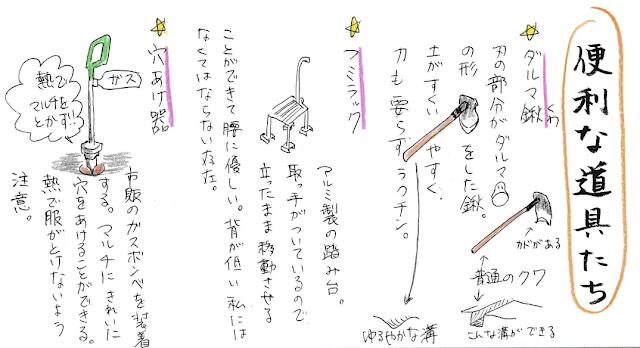 便利な道具たち
ダルマ鍬
くわ
刃の部分がダルマ
の形をした鍬。
土がすくいやすく、
力も要らずラクチン。
カドがある
普通のクワ
こんな溝ができる
ゆるやかな溝
フミラック
アルミ製の踏み台。
取っ手がついているので
立ったまま移動させる
ことができて腰に優しい。背が低い私には
なくてはならない存在。
穴あけ器
ガス
熱で
マルチを
とかす!!
市販のガスボンベを装着
する。マルチにきれいに
穴をあけることができる。
熱で服がとけないよう
注意。